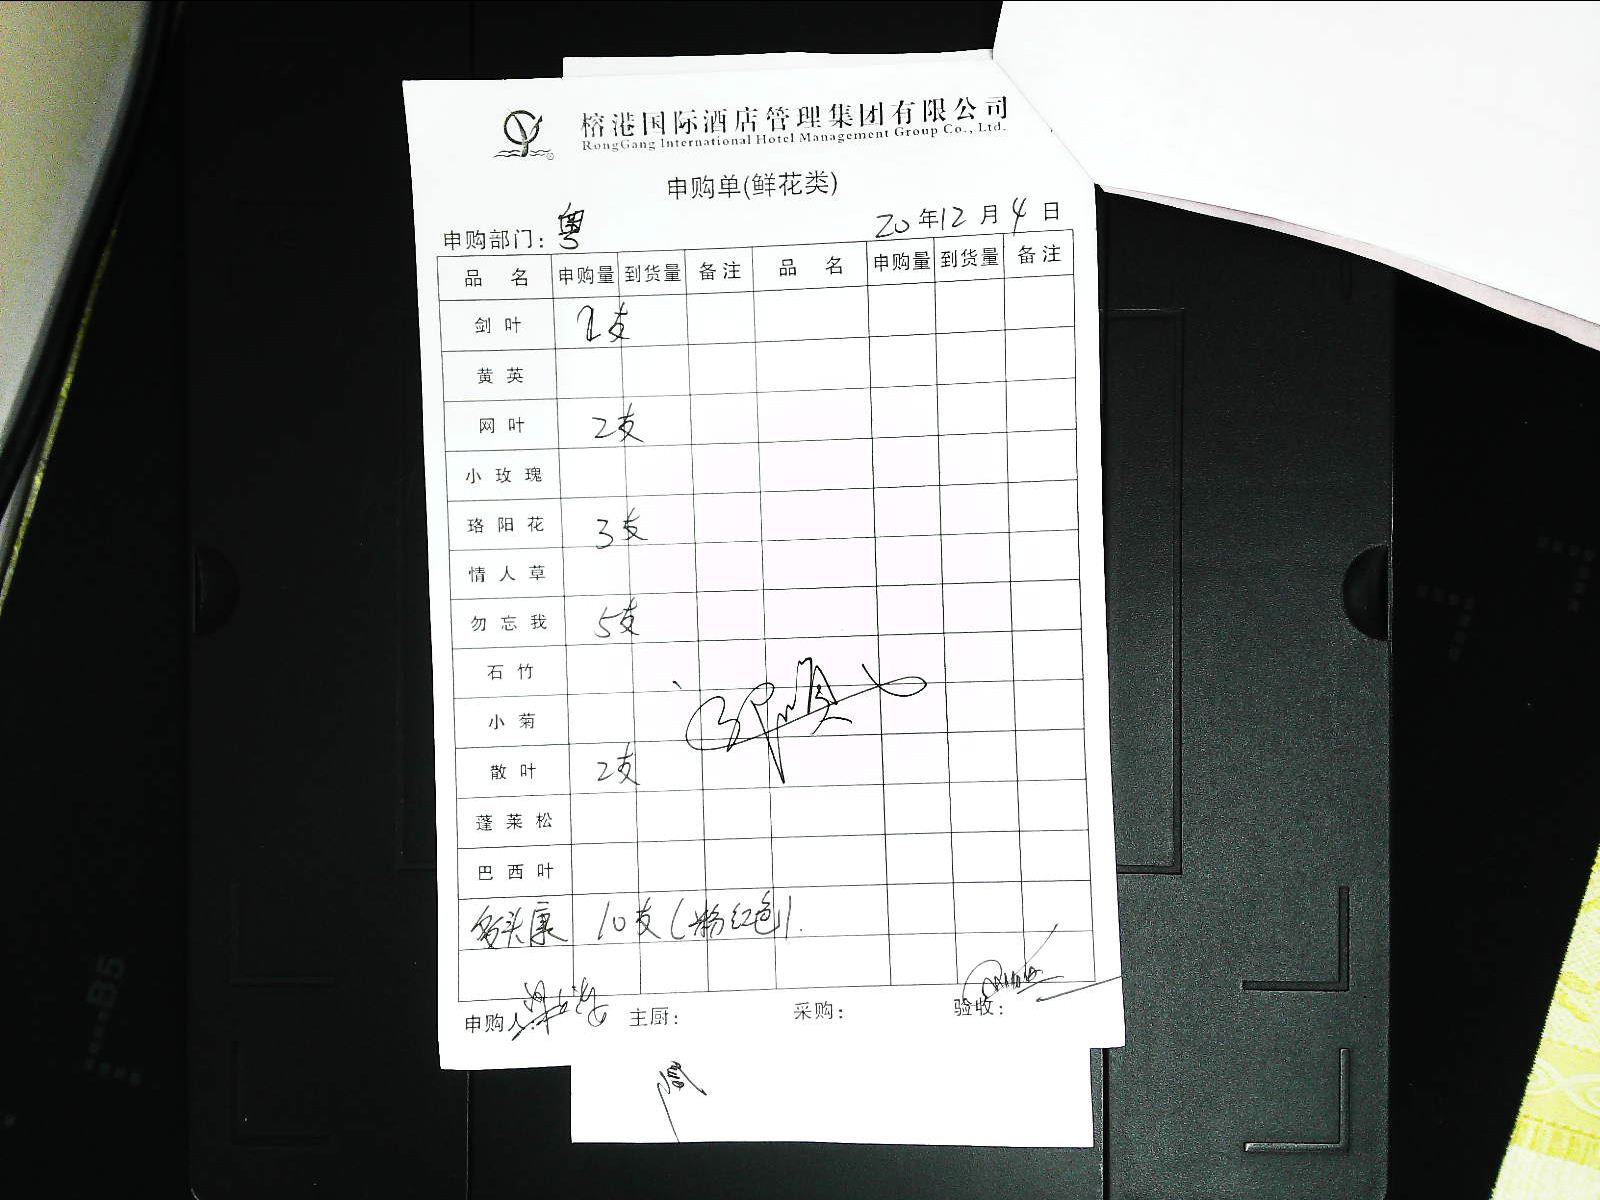 榕港国际酒店管理集团有限公司
RongGang International Hotel Management Group Co., Ltd.
申购单(鲜花类)
申购部门: 粤 20 年 12 月 4 日
品 名 申购量 到货量 备注 品 名 申购量 到货量 备注
剑 叶 2支
黄 英
网 叶 2支
小 玫 瑰
珞 阳 花 3支
情 人 草
勿 忘 我 5支
石 竹
小 菊
散 叶 2支
蓬 莱 松
巴 西 叶
多头康 10支(粉红色).
申购人: 主厨: 采购: 验收: